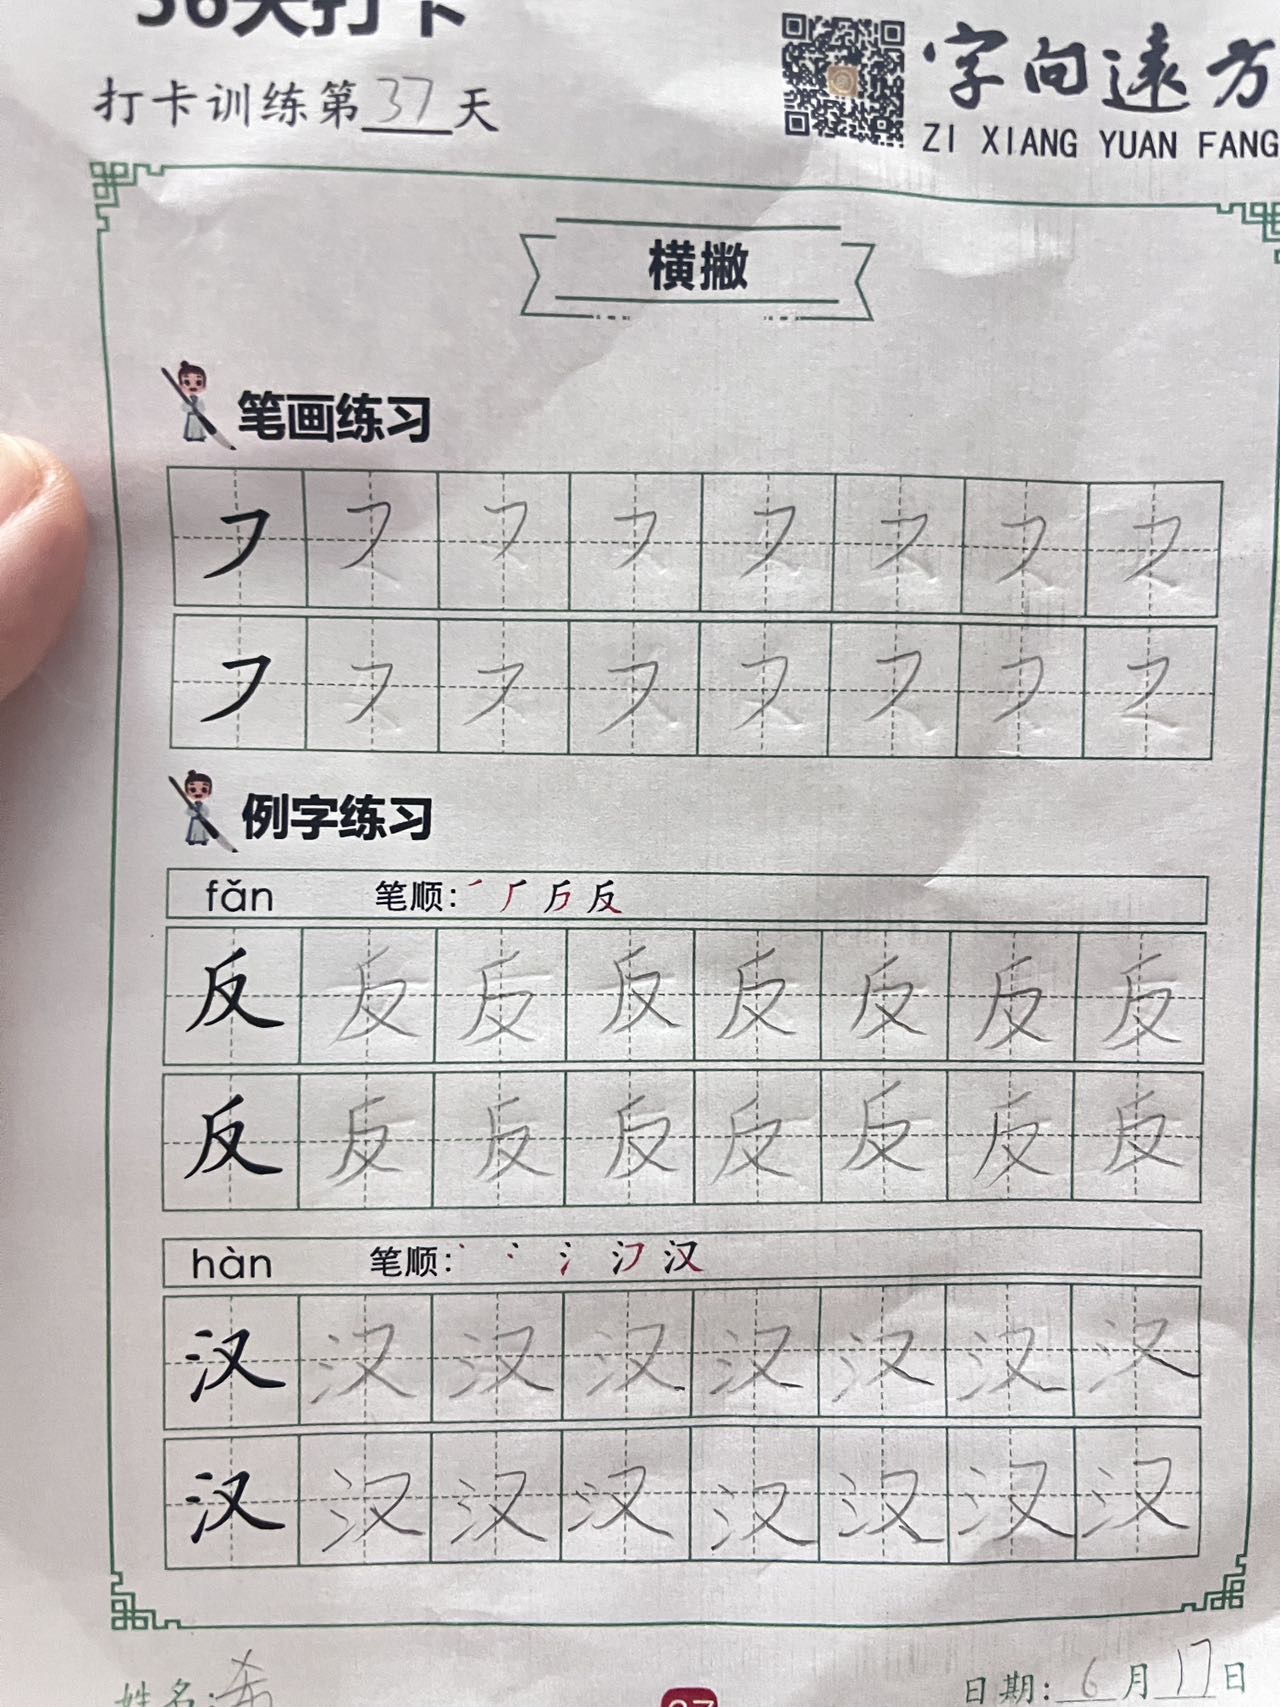 36天打卡
字向远方
打卡训练第37天
ZI XIANG YUAN FANG
横撇
笔画练习
㇇ ㇇ ㇇ ㇇ ㇇ ㇇ ㇇ ㇇
㇇ ㇇ ㇇ ㇇ ㇇ ㇇ ㇇ ㇇
例字练习
fǎn 笔顺: 反
反 反 反 反 反 反 反 反
反 反 反 反 反 反 反 反
hàn 笔顺: 汉
汉 汉 汉 汉 汉 汉 汉 汉
汉 汉 汉 汉 汉 汉 汉 汉
姓名: 日期: 6月17日
37